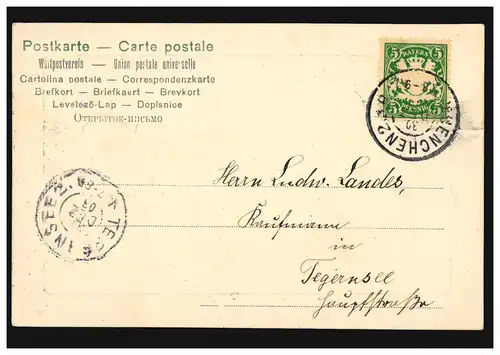 Postkarte — Carte postale
Weltpostverein — Union postale universelle
Cartolina postale — Correspondenzkarte
Brefkort — Briefkaart — Brevkort
Levelező-Lap — Dopisnice
Открытое-письмо
BAYERN
5 5
PFENNIG
MUENCHEN 2
TEGERNSEE
Herrn Ludw. Landes,
Kaufmann
in
Tegernsee
Hauptstraße